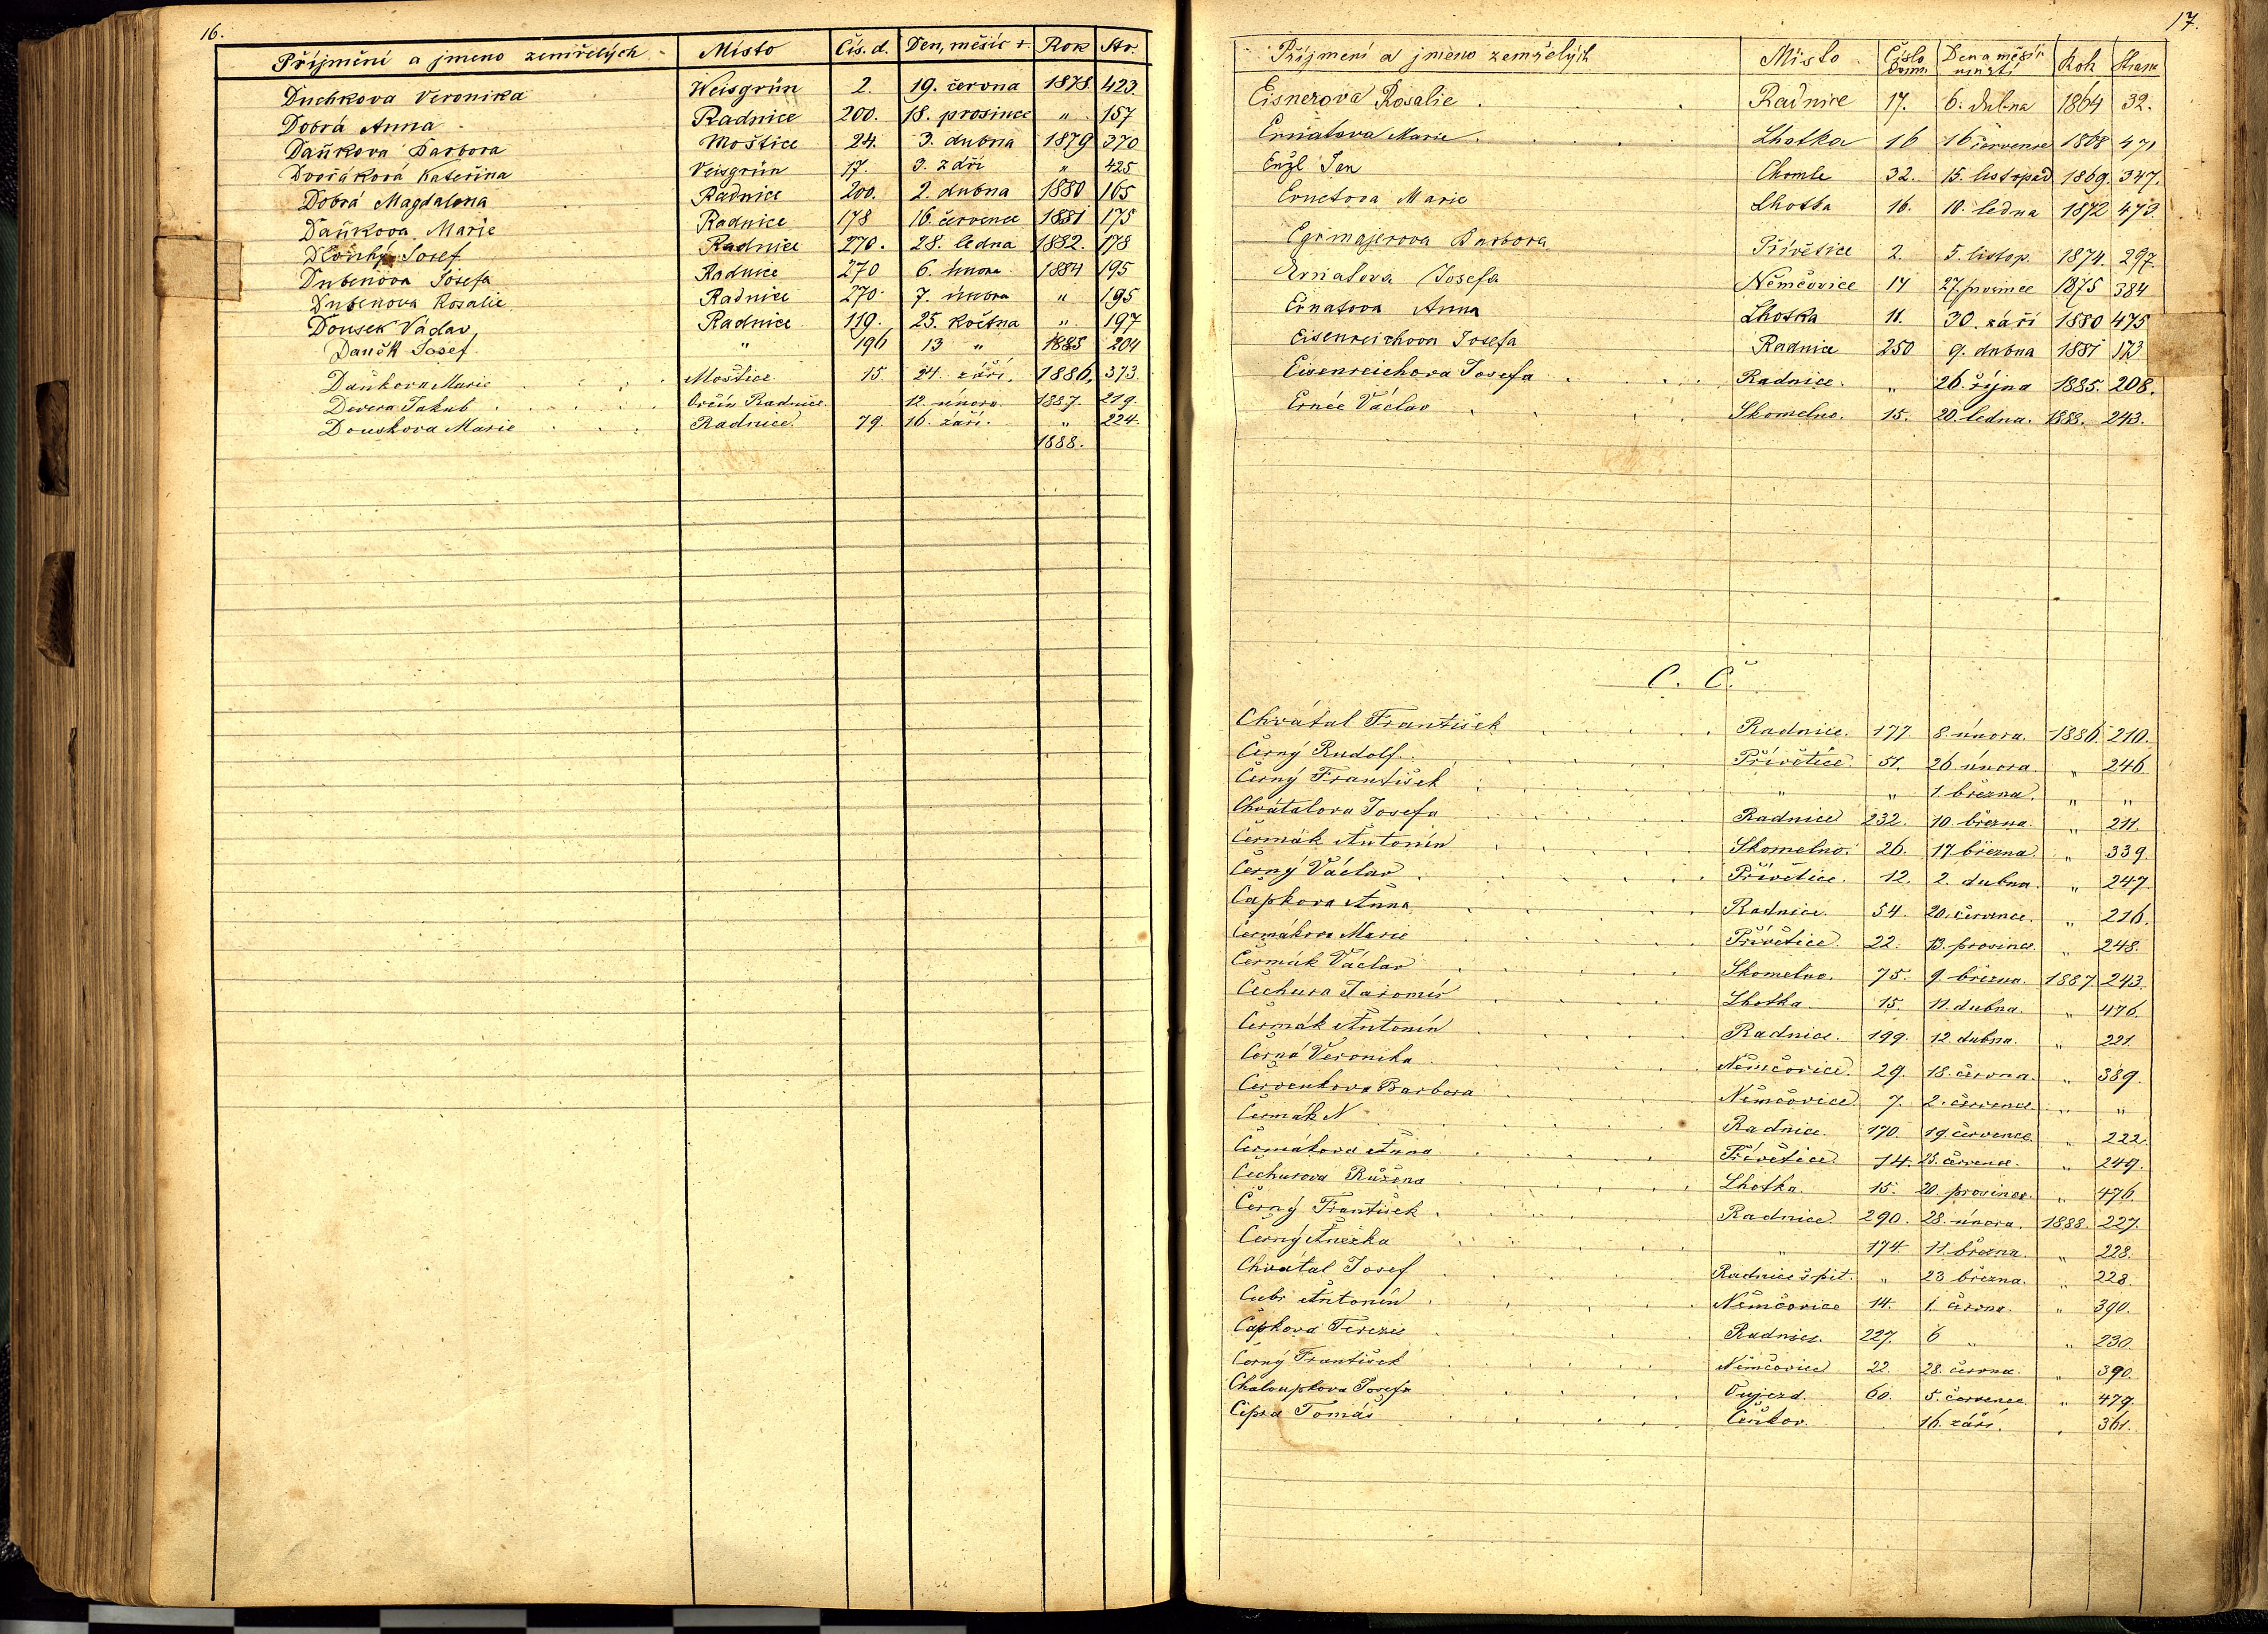 16.
Příjmění a jmeno zemřelých Místo Čís. d. Den, měsíc + Rok Str.
Duchkova Veronika Weisgrün 2. 19. června 1878. 423.
Dobrá Anna Radnice 200. 18. prosince " 157
Daňkova Barbora Moštice 24. 3. dubna 1879 370
Dvořáková Kateřina Veisgrün 17. 3. září " 425
Dobrá Magdalena Radnice 200. 2. dubna 1880 165
Daňkova Marie Radnice 178 16. července 1881 175
Dlouhý Josef Radnice 270. 28. ledna 1882. 178
Dubenova Josefa Radnice 270 6. února 1884 195
Dubenova Rosalie Radnice 270 7. února " 195
Doušek Václav Radnice 119. 25. května " 197
Daněk Josef " 196 13 " 1885 204
Daňkova Marie Moštice 15. 24. září. 1886. 373.
Devera Jakub Radnice. 12. února. 1887. 219.
Douskova Marie Radnice. 79. 16. září. " 224.
1888.
17.
Příjmení a jméno zemřelých Místo Číslo dom. Den a měsíc úmrtí Rok Strana
Eisnerova Rosalie Radnice 17. 6. dubna 1864 32.
Ernatova Marie Lhotka 16 16 července 1868 471
Enzl Jan Chomle 32. 15. listopad 1869. 347.
Ernetova Marie Lhotka 16. 10. ledna 1872 473
Egrmajerova Barbora Přívětice 2. 5. listop. 1874. 297.
Ernatova Josefa Němčovice 14 27. prosince 1875 384
Ernatova Anna Lhotka 11. 30. září 1880 475
Eisenreichova Josefa Radnice 250 9. dubna 1881 173
Eisenreichova Josefa Radnice. " 26. října 1885. 208.
Ernée Václav Skomelno. 15. 20. ledna. 1888. 243.
C. Č.
Chvátal František Radnice. 177. 8. února. 1886. 210.
Černý Rudolf Přívětice. 51. 26. února. " 246
Černý František " " 1. března. " "
Chvátalova Josefa Radnice 232. 10. března. " 211.
Čermák Antonín Skomelno. 26. 17. března. " 339.
Černý Václav Přívětice. 12. 2. dubna. " 247.
Čapkova Anna Radnice. 54. 20. července. " 216.
Čermákova Marie Přívětice. 22. 13. prosince. " 248.
Čermák Václav Skomelno. 75. 9. března. 1887 243.
Čechura Jaromír Lhotka. 15. 11. dubna. " 476.
Čermák Antonín Radnice. 199. 12. dubna. " 221.
Černá Veronika Němčovice. 29. 18. června. " 389.
Červenkova Barbora Němčovice. 7. 2. července. " "
Čermák N Radnice. 170. 19. července. " 222.
Čermákova Anna Přívětice. 14. 25. července. " 249.
Čechurova Růžena Lhotka. 15. 20. prosince. " 476.
Černý František Radnice 290. 28. února. 1888. 227.
Černý Anežka " 174. 11. března. " 228.
Chvátal Josef Radnice špit. " 23 března. " 228.
Cubr Antonín Němčovice 14. 1. června. " 390.
Čapkova Terezie Radnice. 227. 6 " " 230.
Černý František Němčovice 22. 28. června. " 390.
Chaloupkova Josefa Vujezd. 60. 5. července. " 479.
Cipra Tomáš Čeňkov. 16. září. " 361.